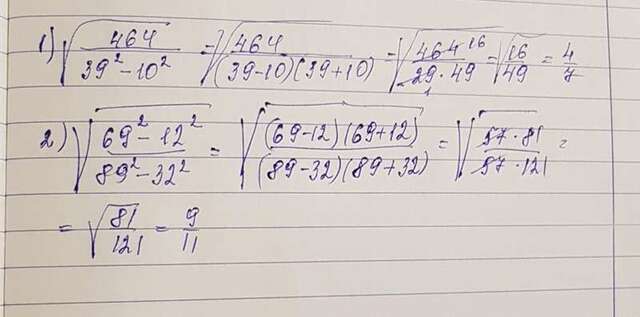 1) √(464 / (39² - 10²)) = √(464 / ((39-10)(39+10))) = √(464 16 / (29 1 · 49)) = √(16/49) = 4/7
2) √((69² - 12²) / (89² - 32²)) = √((69-12)(69+12) / ((89-32)(89+32))) = √(57 · 81 / (57 · 121)) =
= √(81/121) = 9/11